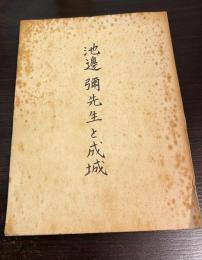 池邊彌先生と成城